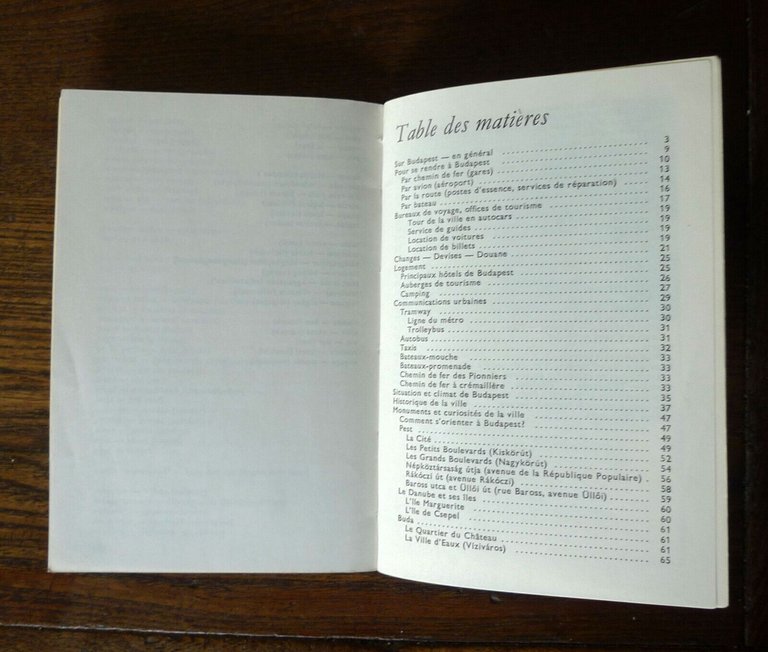 Table des matières
Sur Budapest — en général 3
Pour se rendre à Budapest 9
Par chemin de fer (gares) 10
Par avion (aéroport) 13
Par la route (postes d'essence, services de réparation) 14
Par bateau 16
Bureaux de voyage, offices de tourisme 17
Tour de la ville en autocars 19
Service de guides 19
Location de voitures 19
Location de billets 19
Changes — Devises — Douane 21
Logement 25
Principaux hôtels de Budapest 25
Auberges de tourisme 26
Camping 27
Communications urbaines 29
Tramway 30
Ligne du métro 30
Trolleybus 31
Autobus 31
Taxis 32
Bateaux-mouche 33
Bateaux-promenade 33
Chemin de fer des Pionniers 33
Chemin de fer à crémaillère 33
Situation et climat de Budapest 35
Historique de la ville 37
Monuments et curiosités de la ville 47
Comment s'orienter à Budapest? 47
Pest 49
La Cité 49
Les Petits Boulevards (Kiskörút) 52
Les Grands Boulevards (Nagykörút) 54
Népköztársaság útja (avenue de la République Populaire) 56
Rákóczi út (avenue Rákóczi) 58
Baross utca et Üllői út (rue Baross, avenue Üllői) 59
Le Danube et ses îles 60
L'île Marguerite 60
L'île de Csepel 61
Buda 61
Le Quartier du Château 61
La Ville d'Eaux (Víziváros) 65